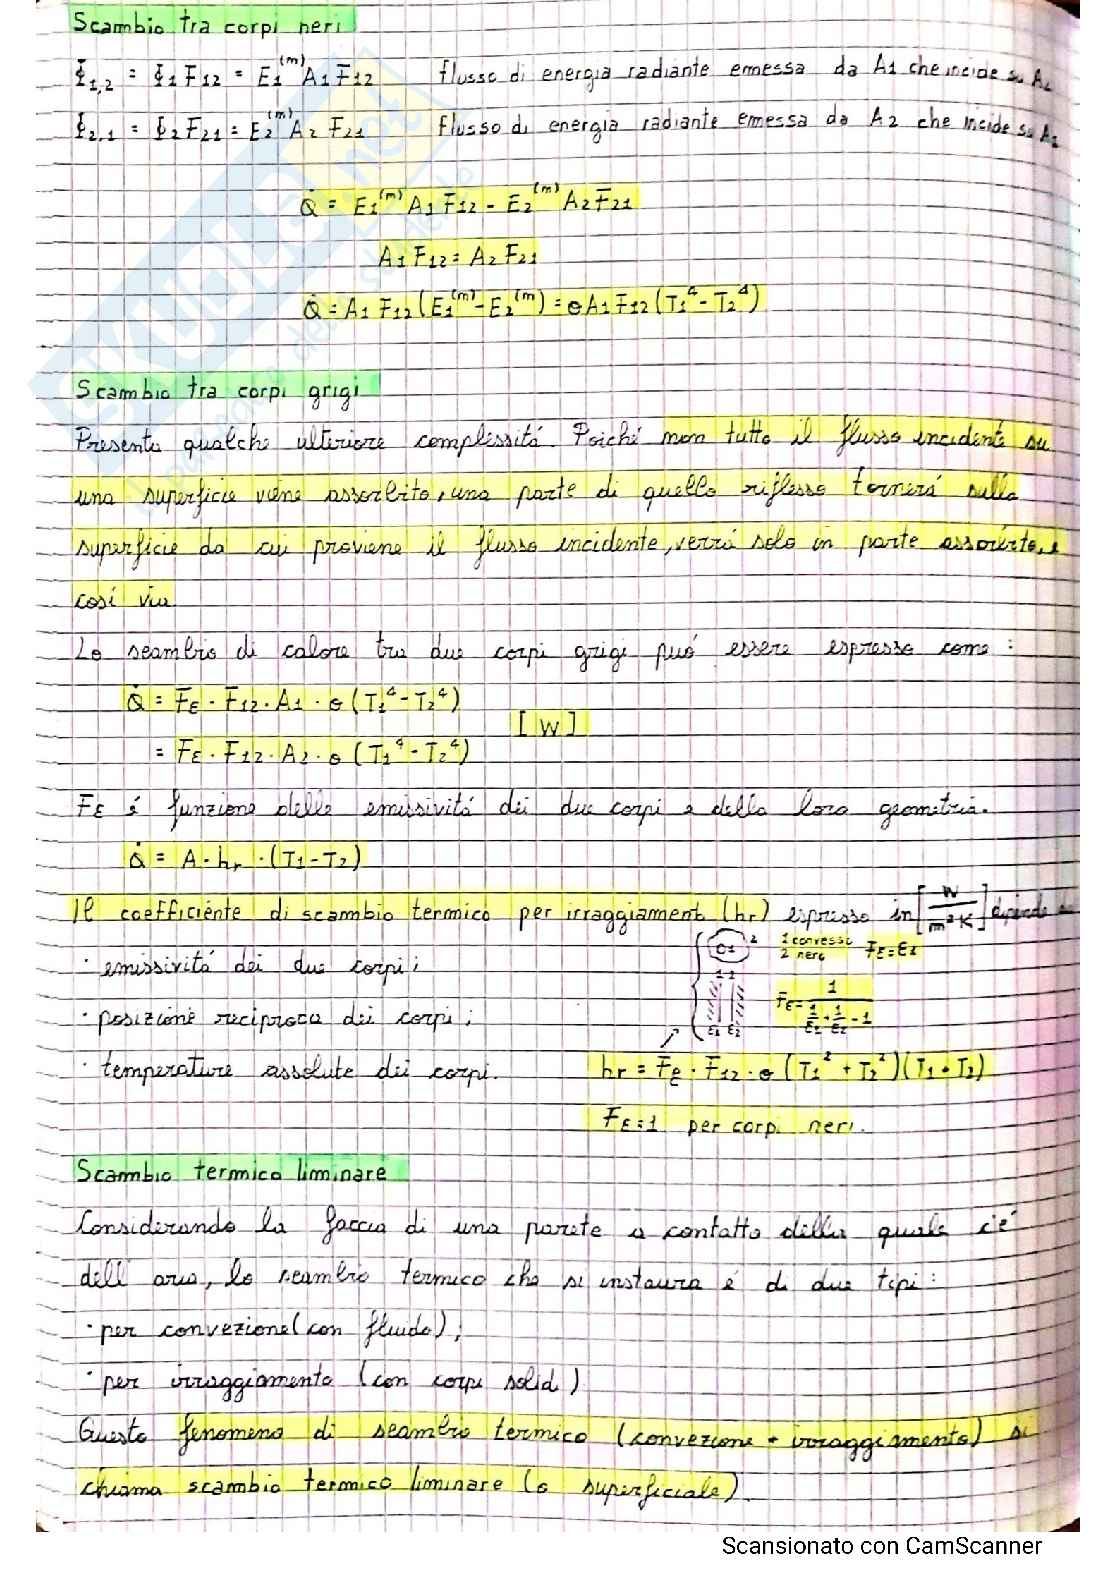 Scambio tra corpi neri
Φ1,2 = Φ1 F12 = E1^(m) A1 F12 flusso di energia radiante emessa da A1 che incide su A2
Φ2,1 = Φ2 F21 = E2^(m) A2 F21 flusso di energia radiante emessa da A2 che incide su A1
Q̇ = E1^(m) A1 F12 - E2^(m) A2 F21
A1 F12 = A2 F21
Q̇ = A1 F12 (E1^(m) - E2^(m)) = σ A1 F12 (T1^4 - T2^4)
Scambio tra corpi grigi
Presenta qualche ulteriore complessitá. Poiché non tutto il flusso incidente su
una superficie viene assorbito, una parte di quello riflesso tornerá sulla
superficie da cui proviene il flusso incidente, verrá solo in parte assorbito, e
cosí via
Lo scambio di calore tra due corpi grigi puó essere espresso come :
Q̇ = Fε · F12 · A1 · σ (T1^4 - T2^4)
[W]
= Fε · F12 · A2 · σ (T1^4 - T2^4)
Fε é funzione delle emissivitá dei due corpi e della loro geometria.
Q̇ = A · hr · (T1 - T2)
Il coefficiente di scambio termico per irraggiament (hr) espresso in [W/m²K] dipende da
· emissivitá dei due corpi;
1 2 1 convesso 2 nero Fε = ε1
· posizione reciproca dei corpi;
1 2 ε1 ε2 Fε = 1/(1/ε1 + 1/ε2 - 1)
· temperature assolute dei corpi. hr = Fε · F12 · σ (T1² + T2²)(T1 + T2)
Fε = 1 per corpi neri.
Scambio termico liminare
Considerando la faccia di una parete a contatto della quale c'é
dell'aria, lo scambio termico che si instaura é di due tipi :
· per convezione (con fluido);
· per irraggiamento (con corpi solidi)
Questo fenomeno di scambio termico (convezione + irraggiamento) si
chiama scambio termico liminare (o superficiale).
Scansionato con CamScanner